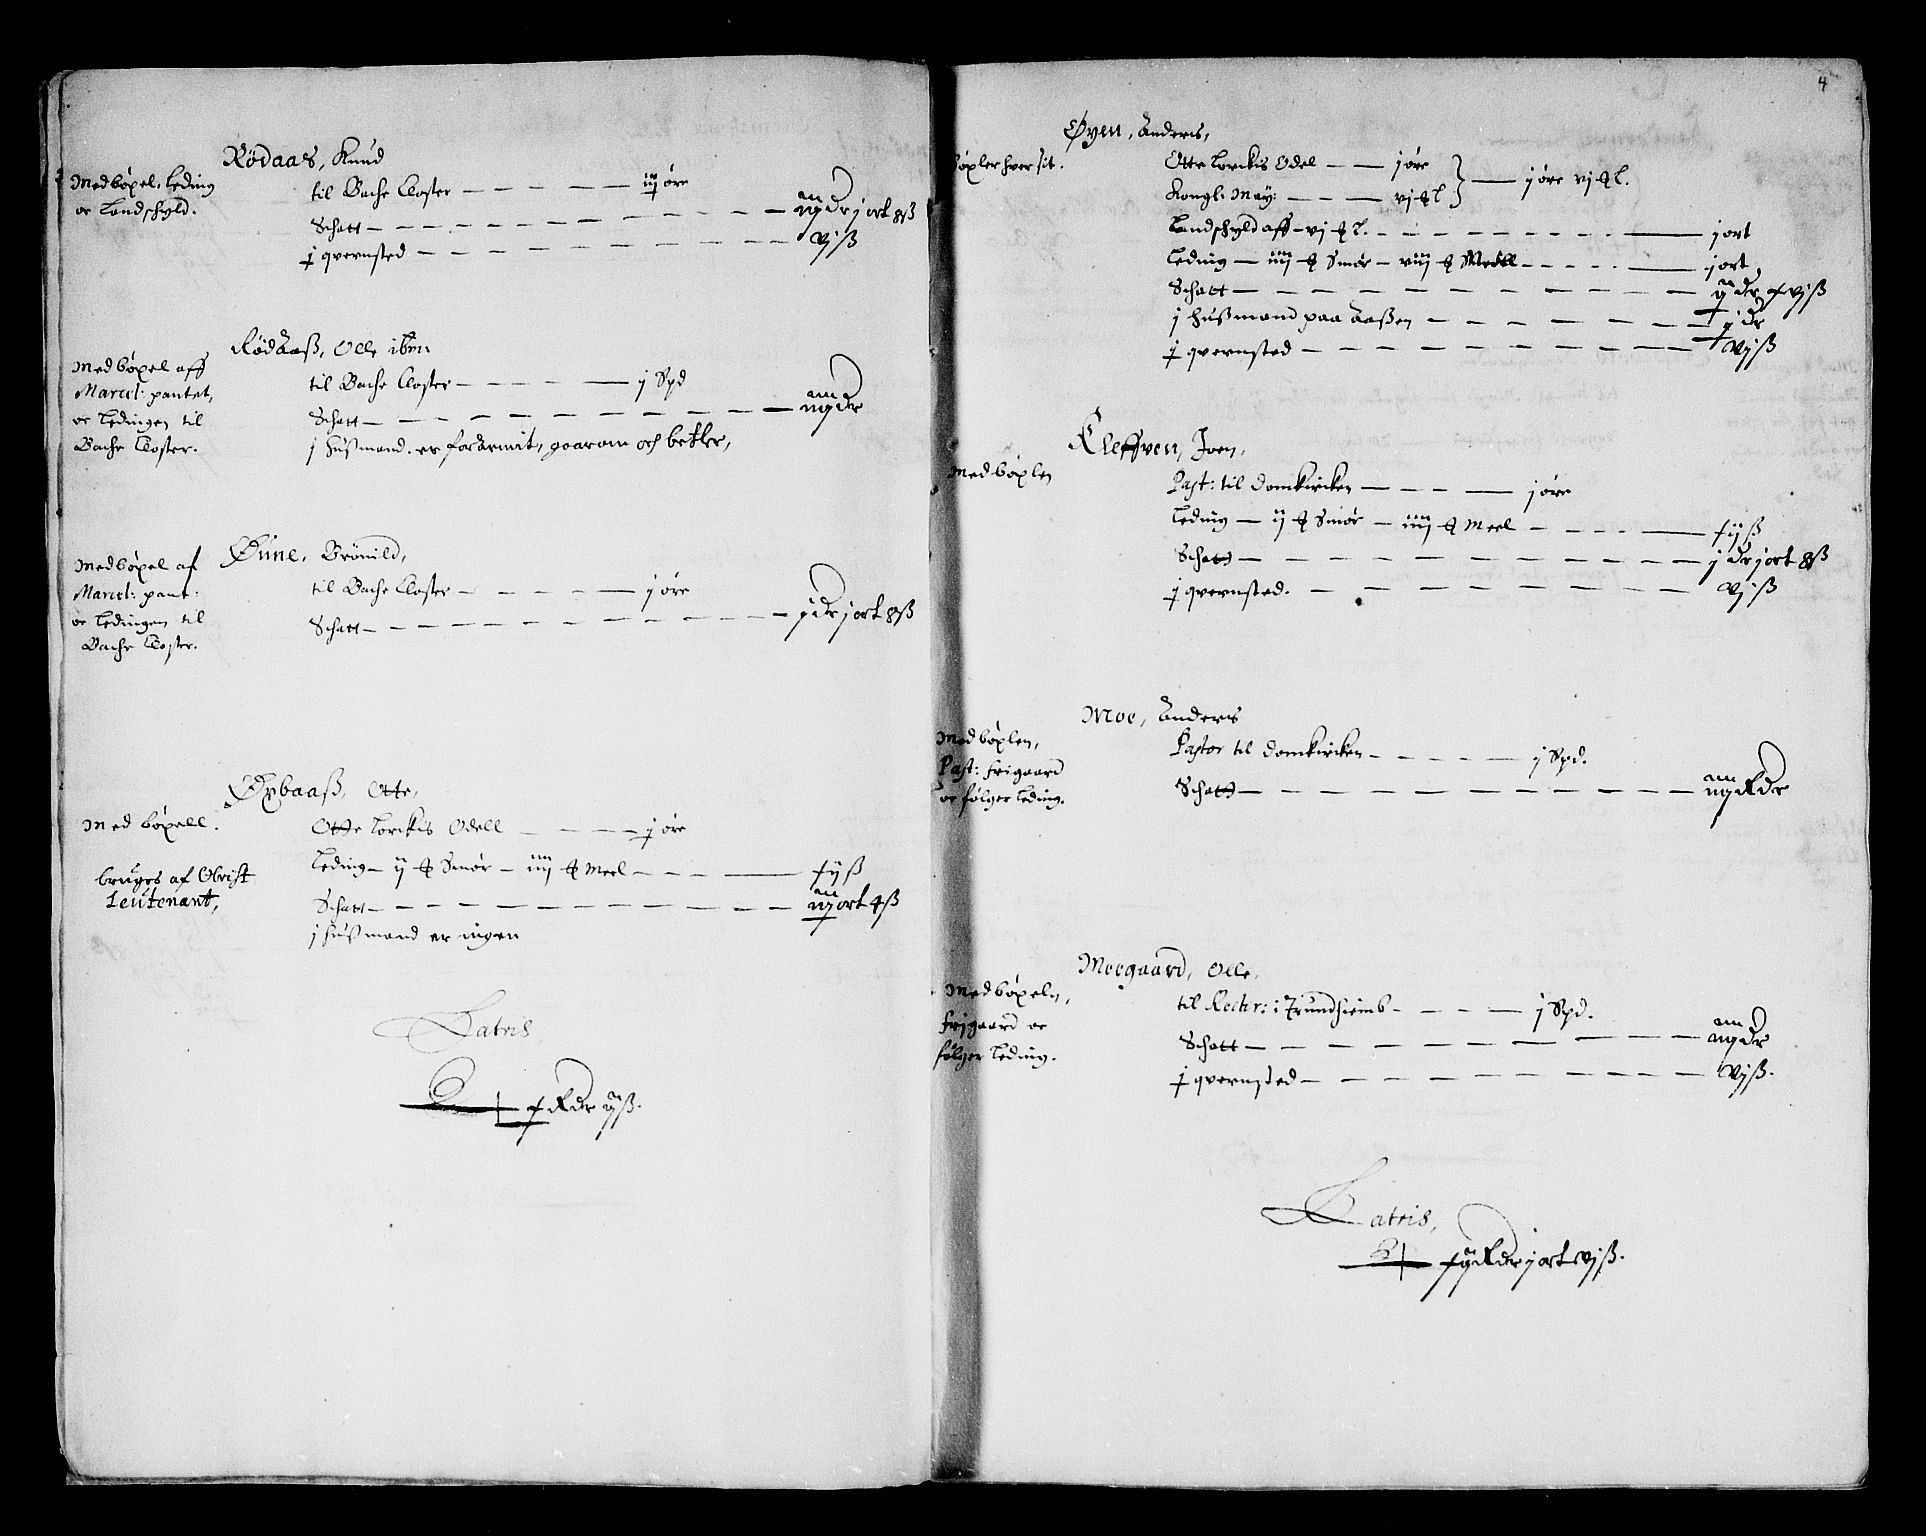 Rödaas, Knud
Med böxel, leding
oc landschyld.
til Bache Closter — — — — — iij öre
Schatt — — — — — — — iiij dr j ort 8 ß
j qvernsted — — — — — — — vj ß
Rödaaß, Olle ibm:
Med böxel aff
Marcel: pantet,
oc ledingen til
Bache Closter.
til Bache Closter — — — — — j Spd
Schatt — — — — — — — iiij dr
j hußmand. er forarmit, gaar om och betler,
Øune, Brönild,
Med böxel af
Marcel: pant:
oc ledingen til
Bache Closter.
til Bache Closter — — — — — j öre
Schatt — — — — — — — j dr j ort 8 ß
Øxbaaß, Otte,
Med böxell.
bruges af Obrist
Leutenant,
Otte Lorckis Odell — — — — j öre
Leding — ij ℔ Smör — iiij ℔ Meel — — — — ß
Schatt — — — — — — — iij ort 4 ß
j hußmand er ingen
Latris
Rdr ij ß.
4
Øyen, Anders,
böxler hver sit.
Otte Lorckis Odel — — j öre
Kongl: May: — — — vj ℔ l } — j öre vj ℔ l.
Landschyld aff — vj ℔ l. — — — — — j ort
Leding — iiij ℔ Smör — viij ℔ Meell — — — j ort
Schatt — — — — — — — ij dr vj ß
j hußmand paa Aaßen — — — — j dr
j qvernsted — — — — — — — vj ß
Kleffven, Joen,
Med böxlen
Past: til domkircken — — — — j öre
Leding — ij ℔ Smör — iiij ℔ Meel — — — — ß
Schatt — — — — — — — j dr j ort 8 ß
j qvernsted. — — — — — — — vj ß
Moe, Anders
Med böxlen,
Past: frigaard
oc fölger leding.
Pastor til domkircken — — — — j Spd.
Schatt — — — — — — — iiij Rdr
Moegaard, Olle,
Med böxeln,
frjgaard oc
fölger leding.
til Rectr: i Trundhiemb — — — — j Spd.
Schatt — — — — — — — iiij dr
j qvernsted — — — — — — — vj ß.
Latris,
Rdr j ort vj ß.